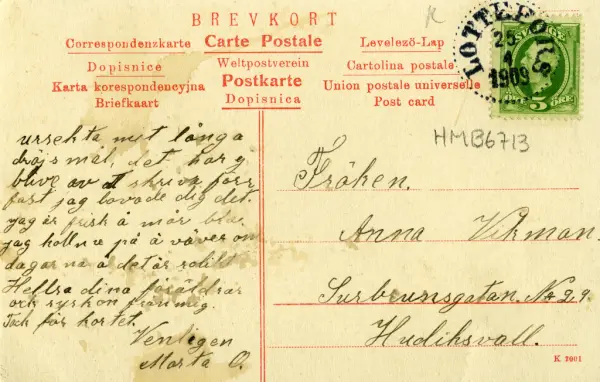 BREVKORT
Correspondenzkarte Carte Postale Levelező-Lap
Dopisnice Weltpostverein Cartolina postale
Karta korespondencyjna Postkarte Union postale universelle
Briefkaart Dopisnica Post card
K
LOTTEFORS
25
4
1909
SVERIGE
5 ÖRE
HMB6713
ursekta mit långa
dröjsmål, det har ej
blive av at skriva förr
fast jag lovade dig det.
jag är frisk å mår bra.
jag holler på å väver om
dagarna å det är rolit
Hellsa dina föräldrar
ock syskon från mig.
Tack för kortet.
Venligen
Marta O.
Fröken.
Anna Vikman.
Surbrunsgatan. No 29.
Hudiksvall.
K 2001